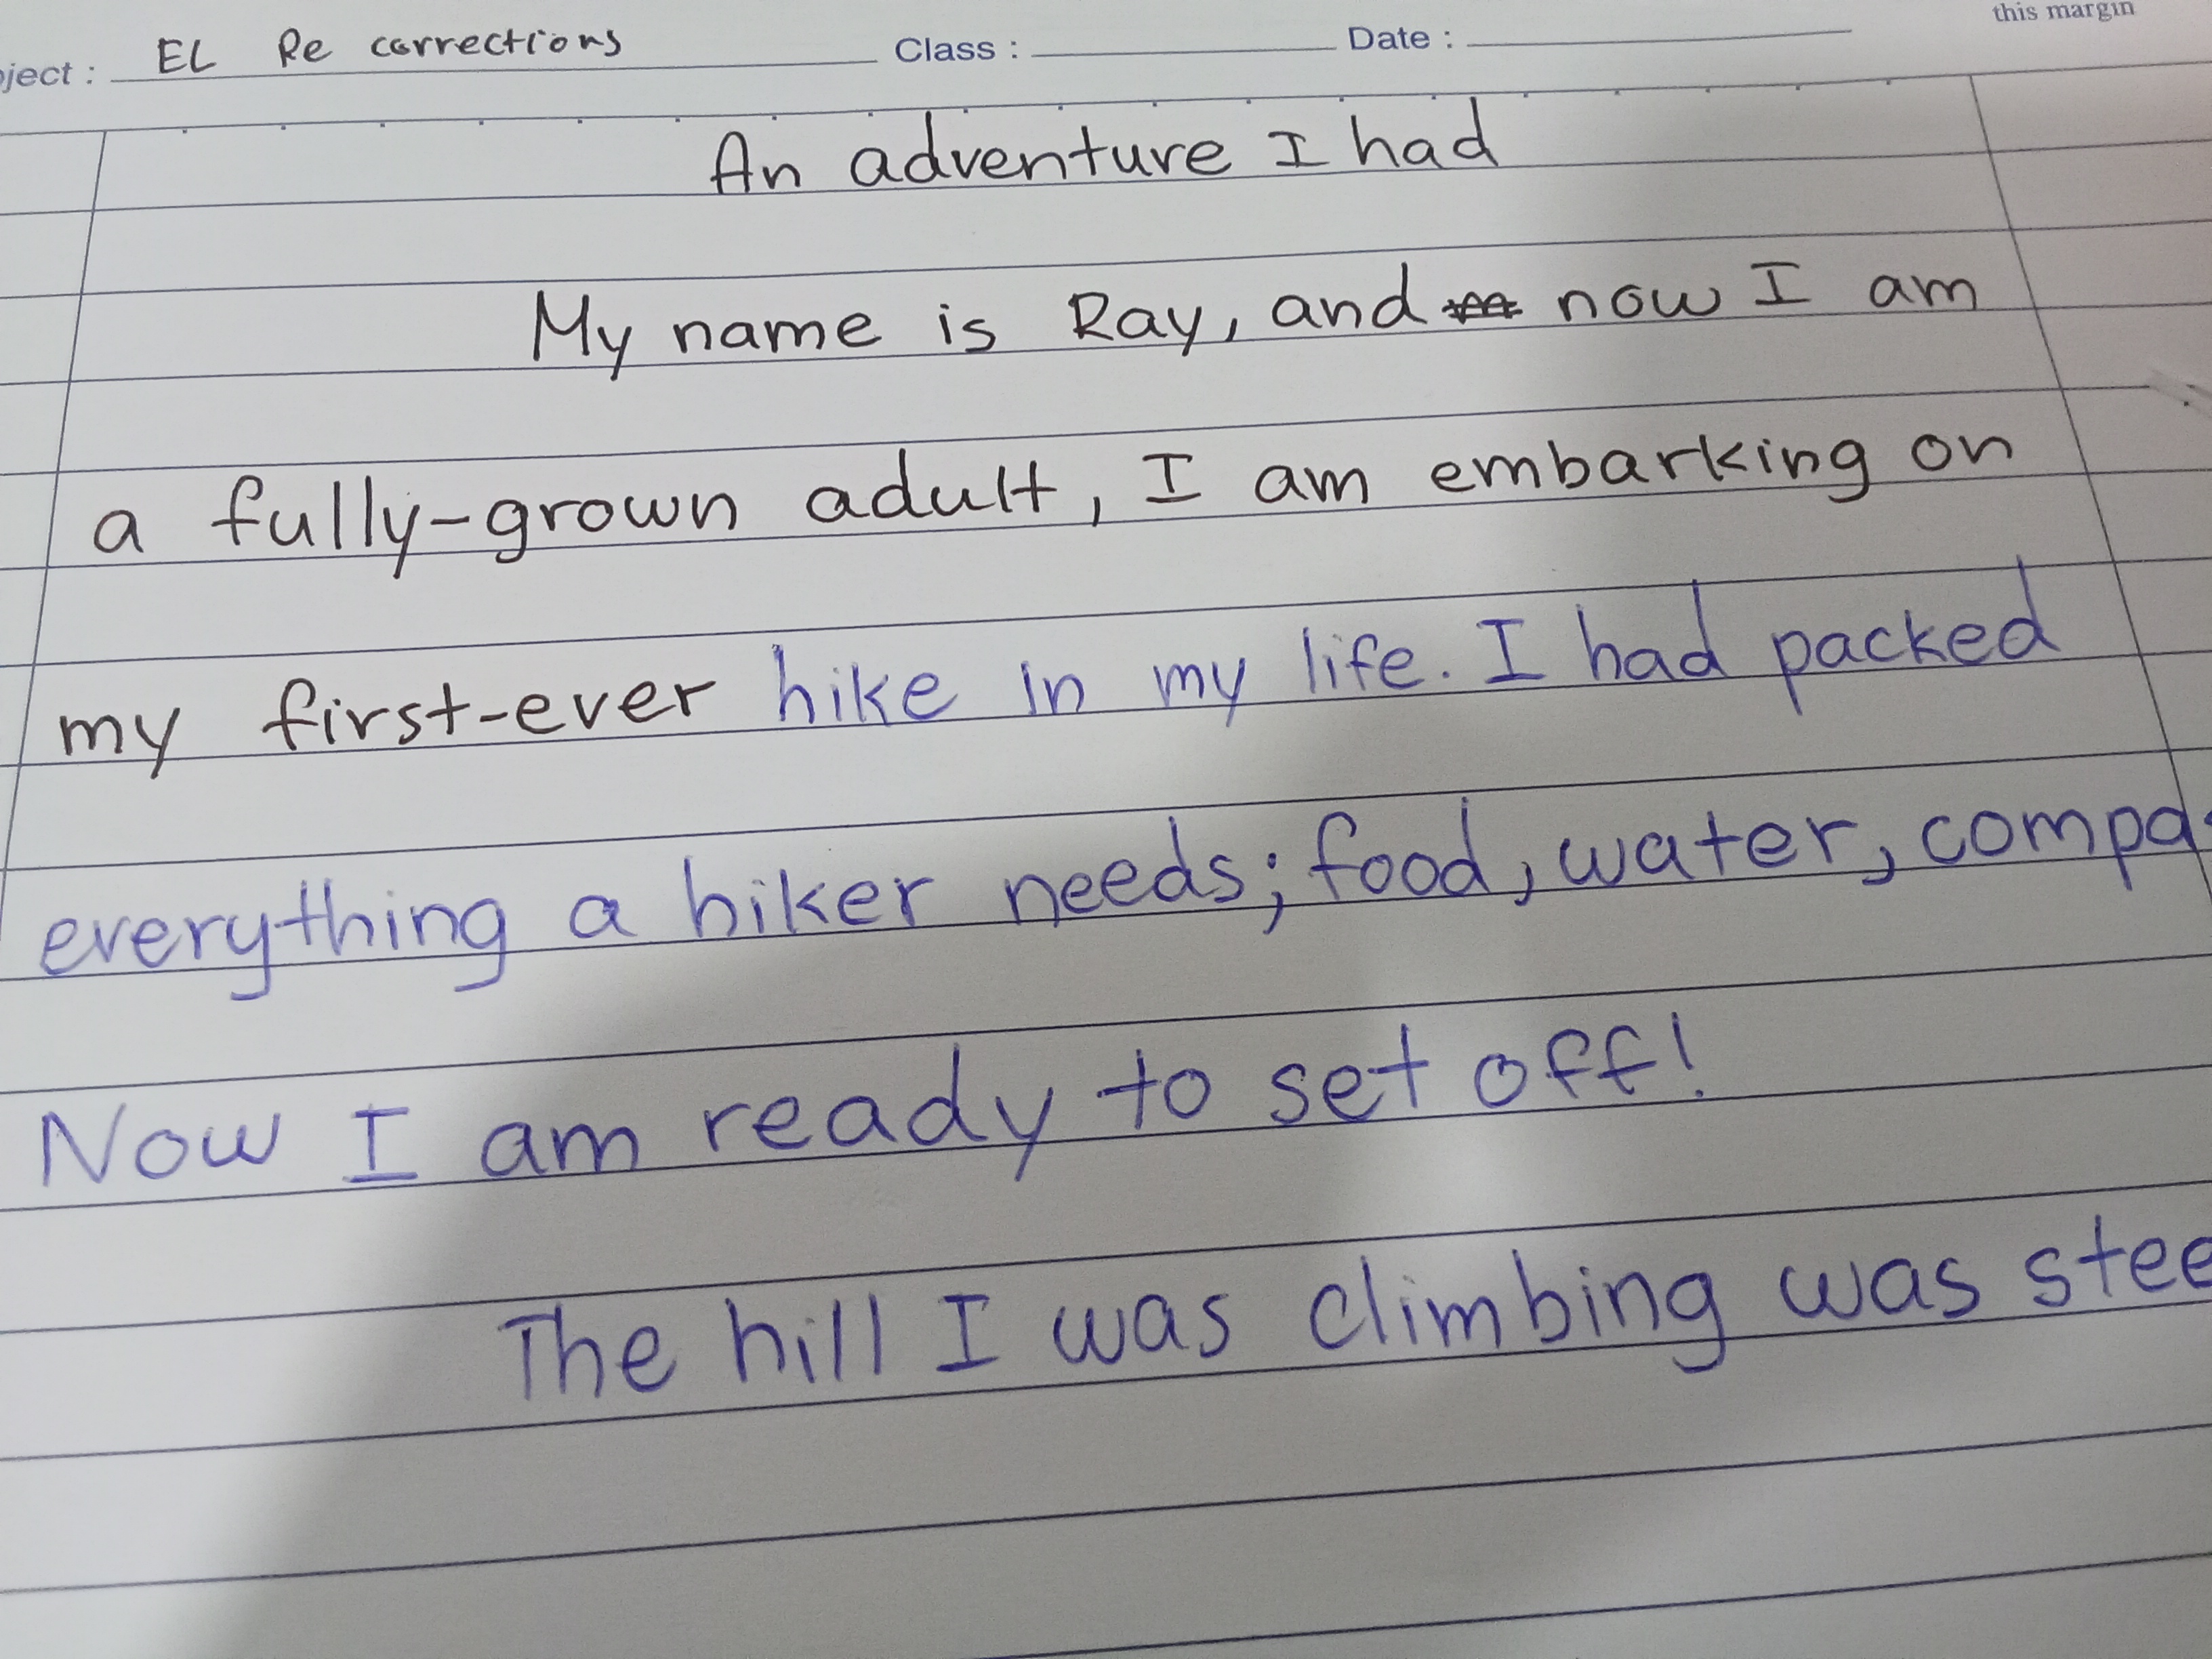 this margin
ject : EL Re corrections Class : Date :
An adventure I had
My name is Ray, and now I am
a fully-grown adult, I am embarking on
my first-ever hike in my life. I had packed
everything a hiker needs; food, water, compa
Now I am ready to set off!
The hill I was climbing was stee